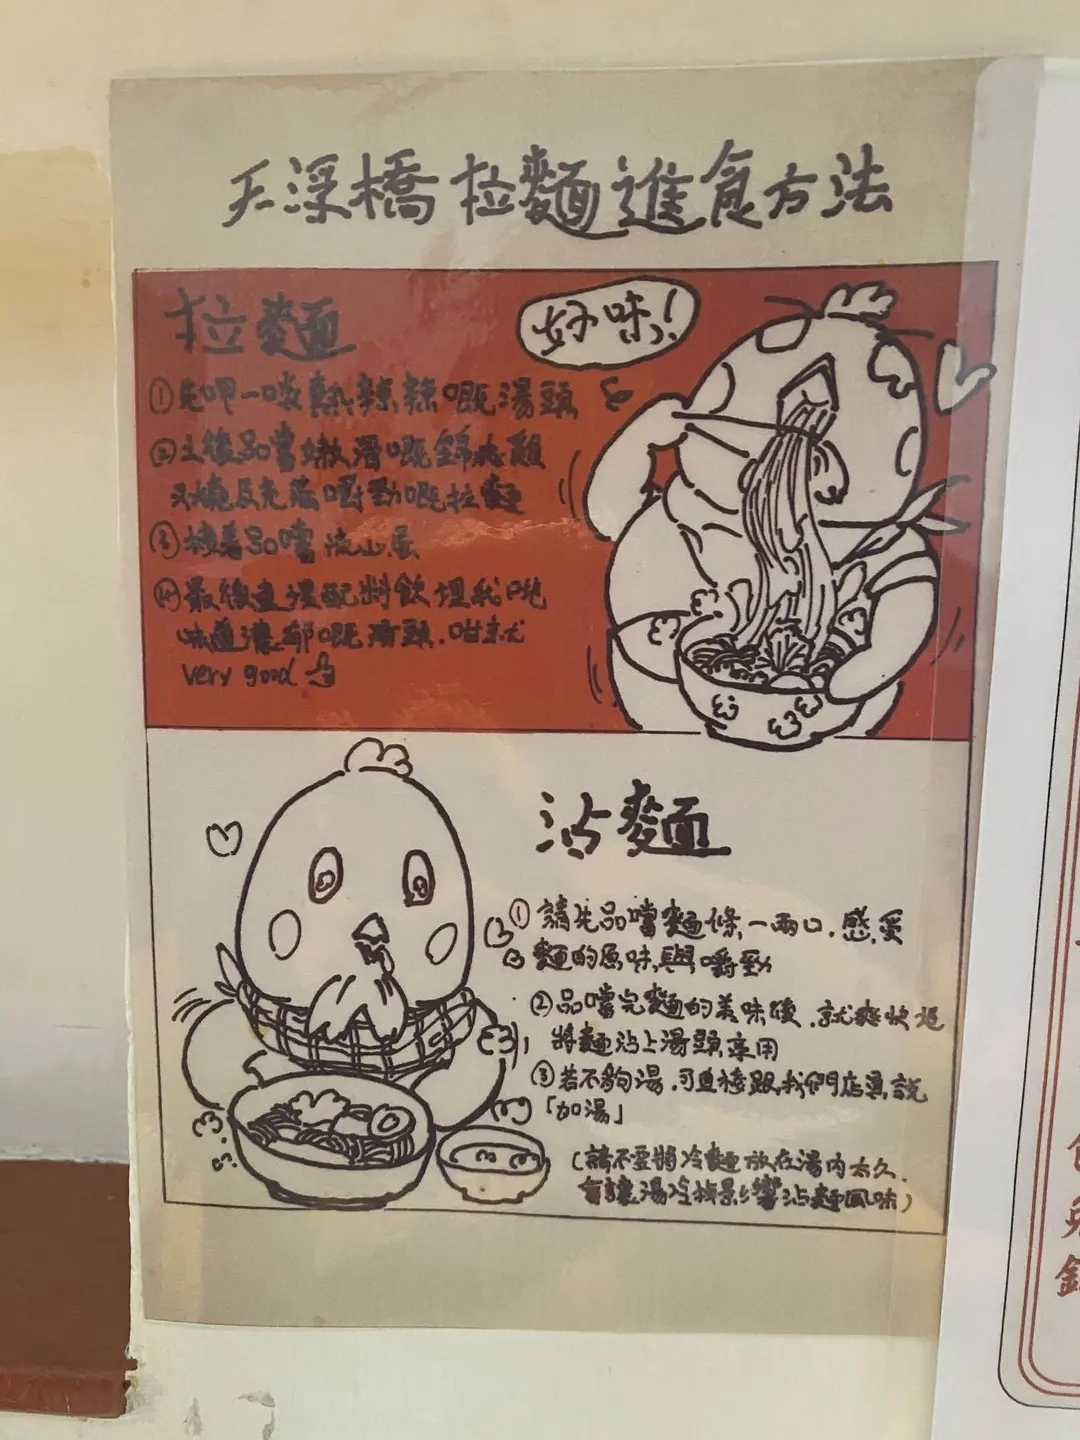 天深橋拉麵進食方法
好味!
拉麵
①先呷一啖熱辣辣嘅湯頭
②之後品嚐嫩滑嘅錦爽雞
叉燒及充滿嚼勁嘅拉麵
③接着品嚐流心蛋
④最後直接配料飲埋我哋
味道濃郁嘅湯頭.咁就
very good
沾麵
①請先品嚐麵條一兩口.感受
麵的原味與嚼勁
②品嚐完麵的美味後.就爽快地
將麵沾上湯頭享用
③若不夠湯.可直接跟我們店員說
「加湯」
(請不要將冷麵放在湯內太久.
會讓湯冷掉影響沾麵風味)